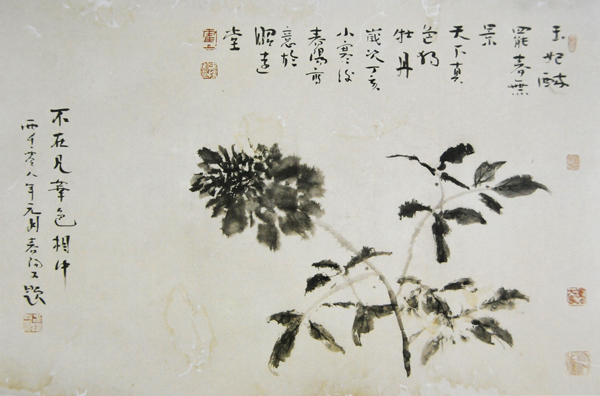 玉妃醉
罷春無
景
天下真
色獨
牡丹
歲次丁亥
小寒後
春陽寫
意於
遠
堂
不在凡華色相中
兩千零八年元月春陽又題